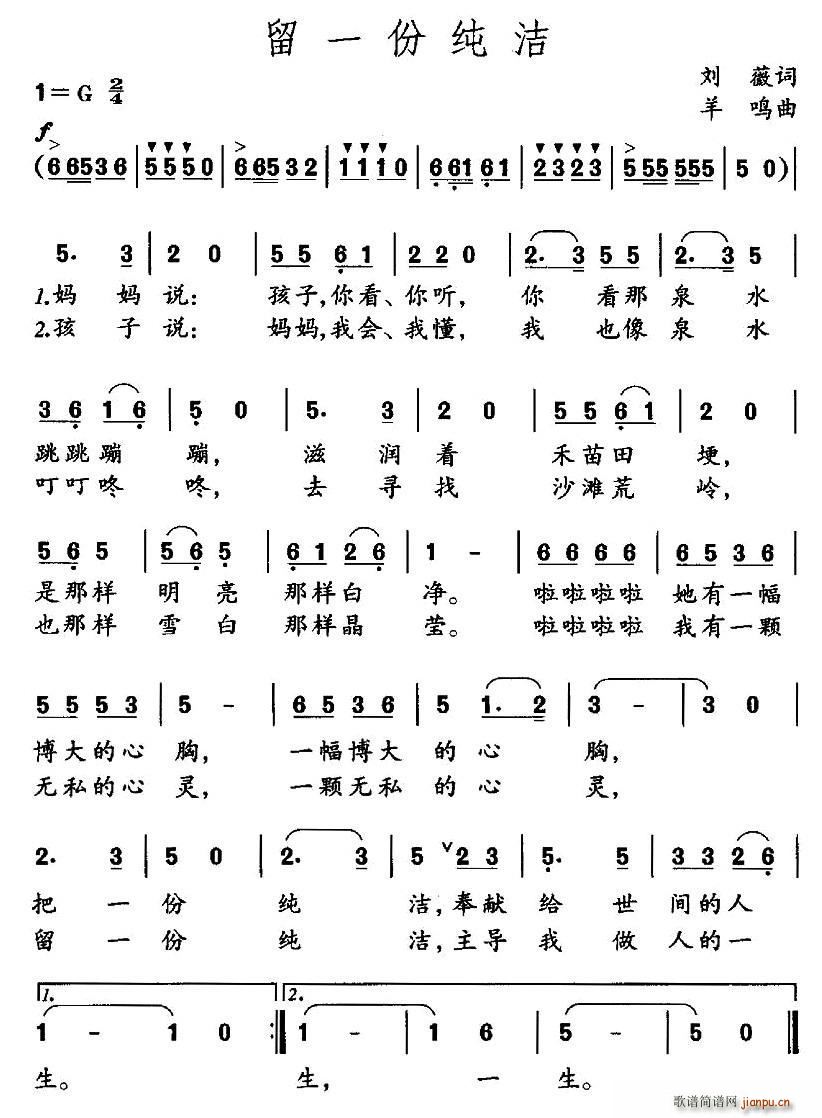 留一份纯洁
刘 薇词
1=G 2/4
羊 鸣曲
f
(6 6536|5550|6 6532|1110|6 61 61|2323|5 55 555|5 0)|
5. 3|2 0|5 5 6 1|2 2 0|2. 3 5 5|2. 3 5|
1.妈 妈 说: 孩子,你看、你听, 你 看那 泉 水
2.孩 子 说: 妈妈,我会、我懂, 我 也像 泉 水
3 6 1 6|5 0|5. 3|2 0|5 5 6 1|2 0|
跳跳蹦 蹦, 滋 润 着 禾苗田 埂,
叮叮咚 咚, 去 寻 找 沙滩荒 岭,
5 6 5|5 6 5|6 1 2 6|1 -|6 6 6 6|6 5 3 6|
是那样 明 亮 那样白 净。 啦啦啦啦 她有一幅
也那样 雪 白 那样晶 莹。 啦啦啦啦 我有一颗
5 5 5 3|5 -|6 5 3 6|5 1. 2|3 -|3 0|
博大的心 胸, 一幅博大 的 心 胸,
无私的心 灵, 一颗无私 的 心 灵,
2. 3|5 0|2. 3|5 ∨2 3|5. 5|3 3 2 6|
把 一 份 纯 洁,奉献 给 世 间的人
留 一 份 纯 洁,主导 我 做 人的一
1. 2.
1 -|1 0:‖1 -|1 6|5 -|5 0‖
生。 生, 一 生。
歌谱简谱网
jianpu.cn